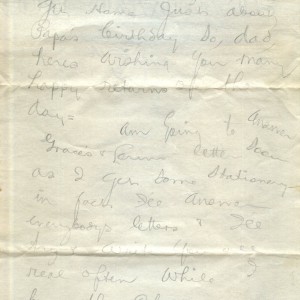 Get Home Just about
Papa's Birthday So, dad,
heres wishing you many
happy returns of the
day =
am going to answer
Graces & letter Soon
as I get some Stationery
in fact I'll answer
everybodys letters & I'll
real often while